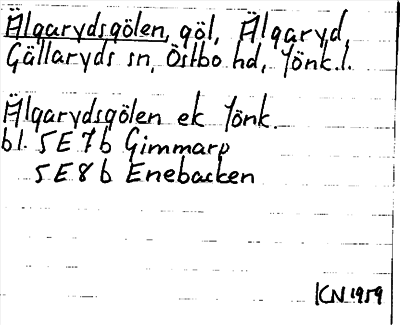 Älgarydsgölen, göl, Älgaryd,
Gällaryds sn, Östbo hd, Jönk.l.
Älgarydsgölen ek Jönk.
bl. 5E7b Gimmarp
5E8b Enebacken
KN 1959